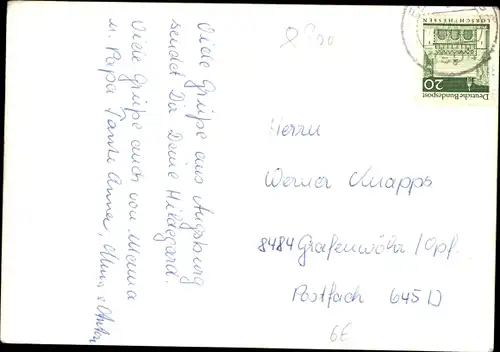 Viele Grüße aus Augsburg
sendet Dir Deine Hildegard.
Viele Grüße auch von Mama
u. Papa Tante Anna,
Herrn
Werner Knapps
8484 Grafenwöhr/Opf.
Postfach 645D
6E
20
Deutsche Bundespost
LORSCH/HESSEN